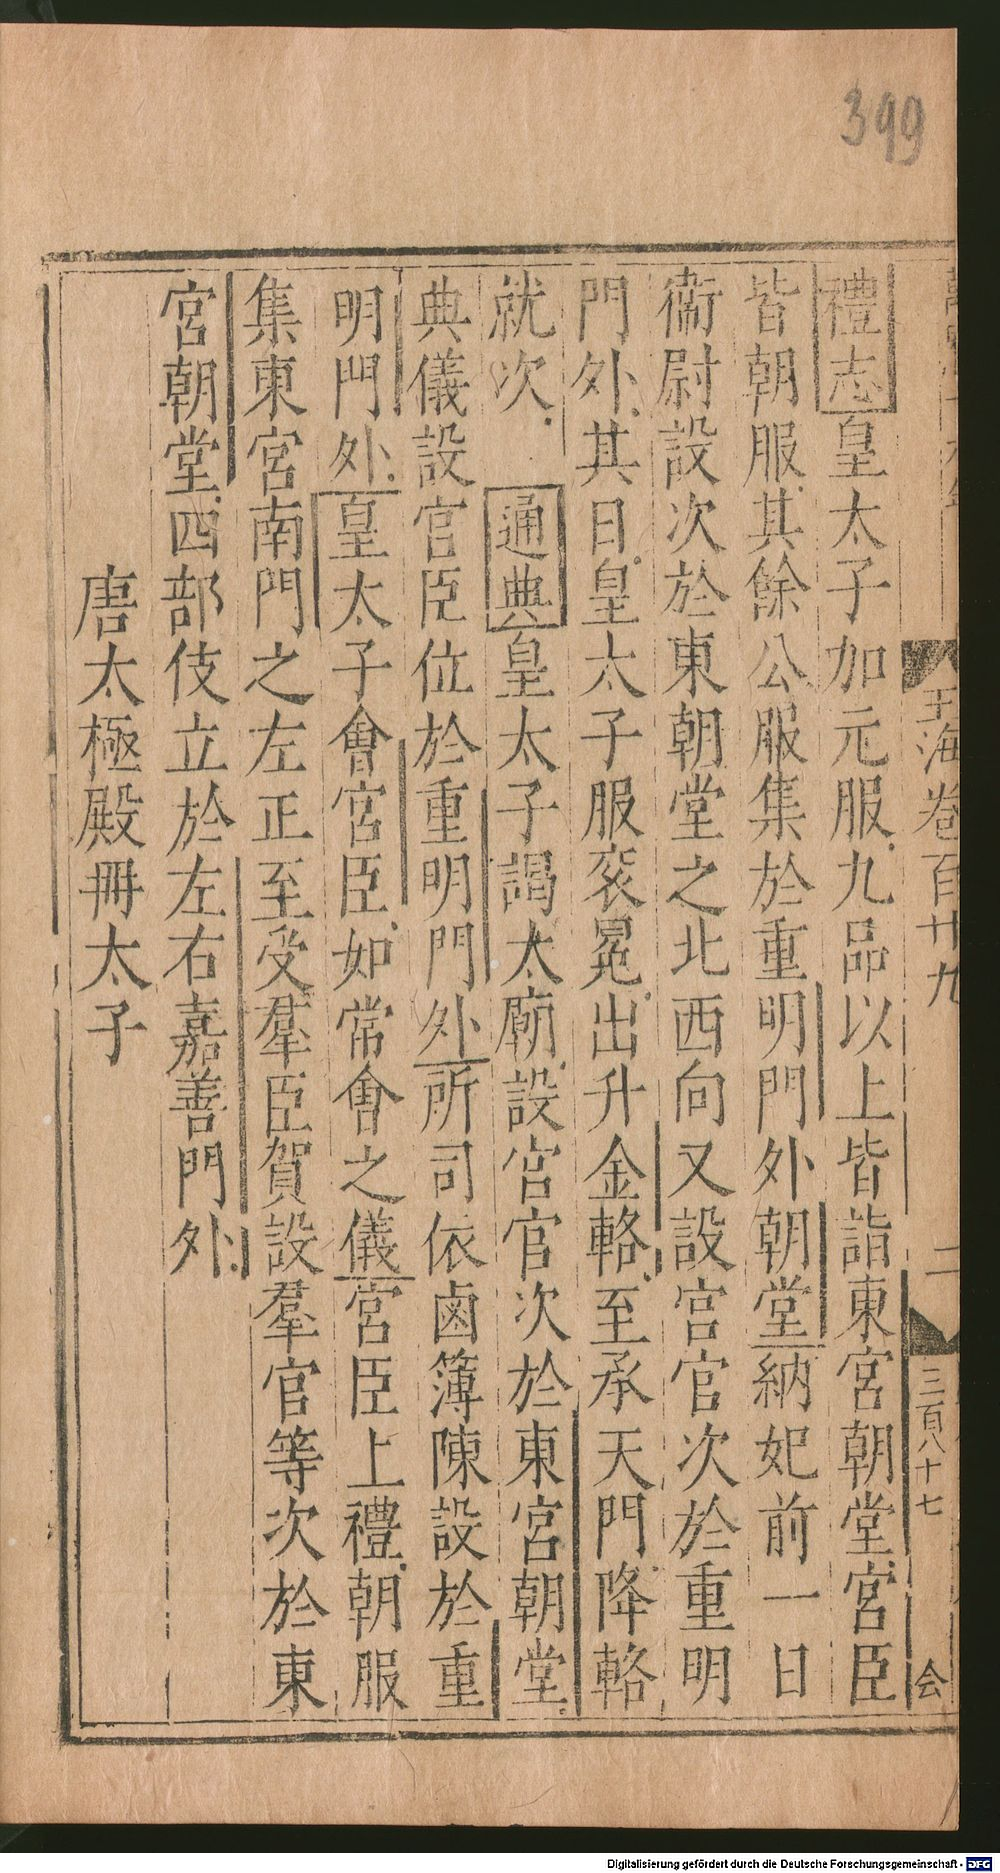 399
玉海卷百廿九
二
三百八十七
会
禮志皇太子加元服九品以上皆詣東宮朝堂宮臣
皆朝服其餘公服集於重明門外朝堂納妃前一日
衞尉設次於東朝堂之北西向又設宮官次於重明
門外其日皇太子服衮冕出升金輅至承天門降輅
就次 通典皇太子謁太廟設宮官次於東宮朝堂
典儀設宮臣位於重明門外所司依鹵簿陳設於重
明門外皇太子會宮臣如常會之儀宮臣上禮朝服
集東宮南門之左正至受羣臣賀設羣官等次於東
宮朝堂四部伎立於左右嘉善門外
唐太極殿冊太子
Digitalisierung gefördert durch die Deutsche Forschungsgemeinschaft - DFG